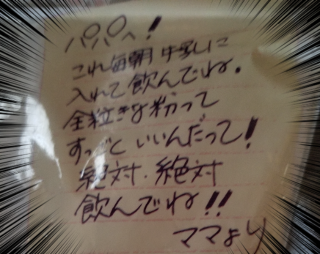 パパへ!
これ毎朝 牛乳に
入れて飲んでね。
全粒きな粉って
ずっといいんだって!
絶対、絶対
飲んでね!!
ママより